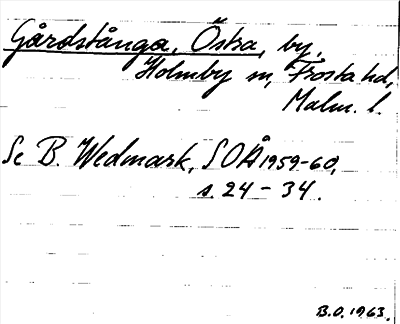 Gårdstånga, Östra, by,
Holmby sn, Frosta hd,
Malm. l.
Se B. Wedmark, SOÅ 1959-60,
s. 24 - 34.
B.O. 1963.